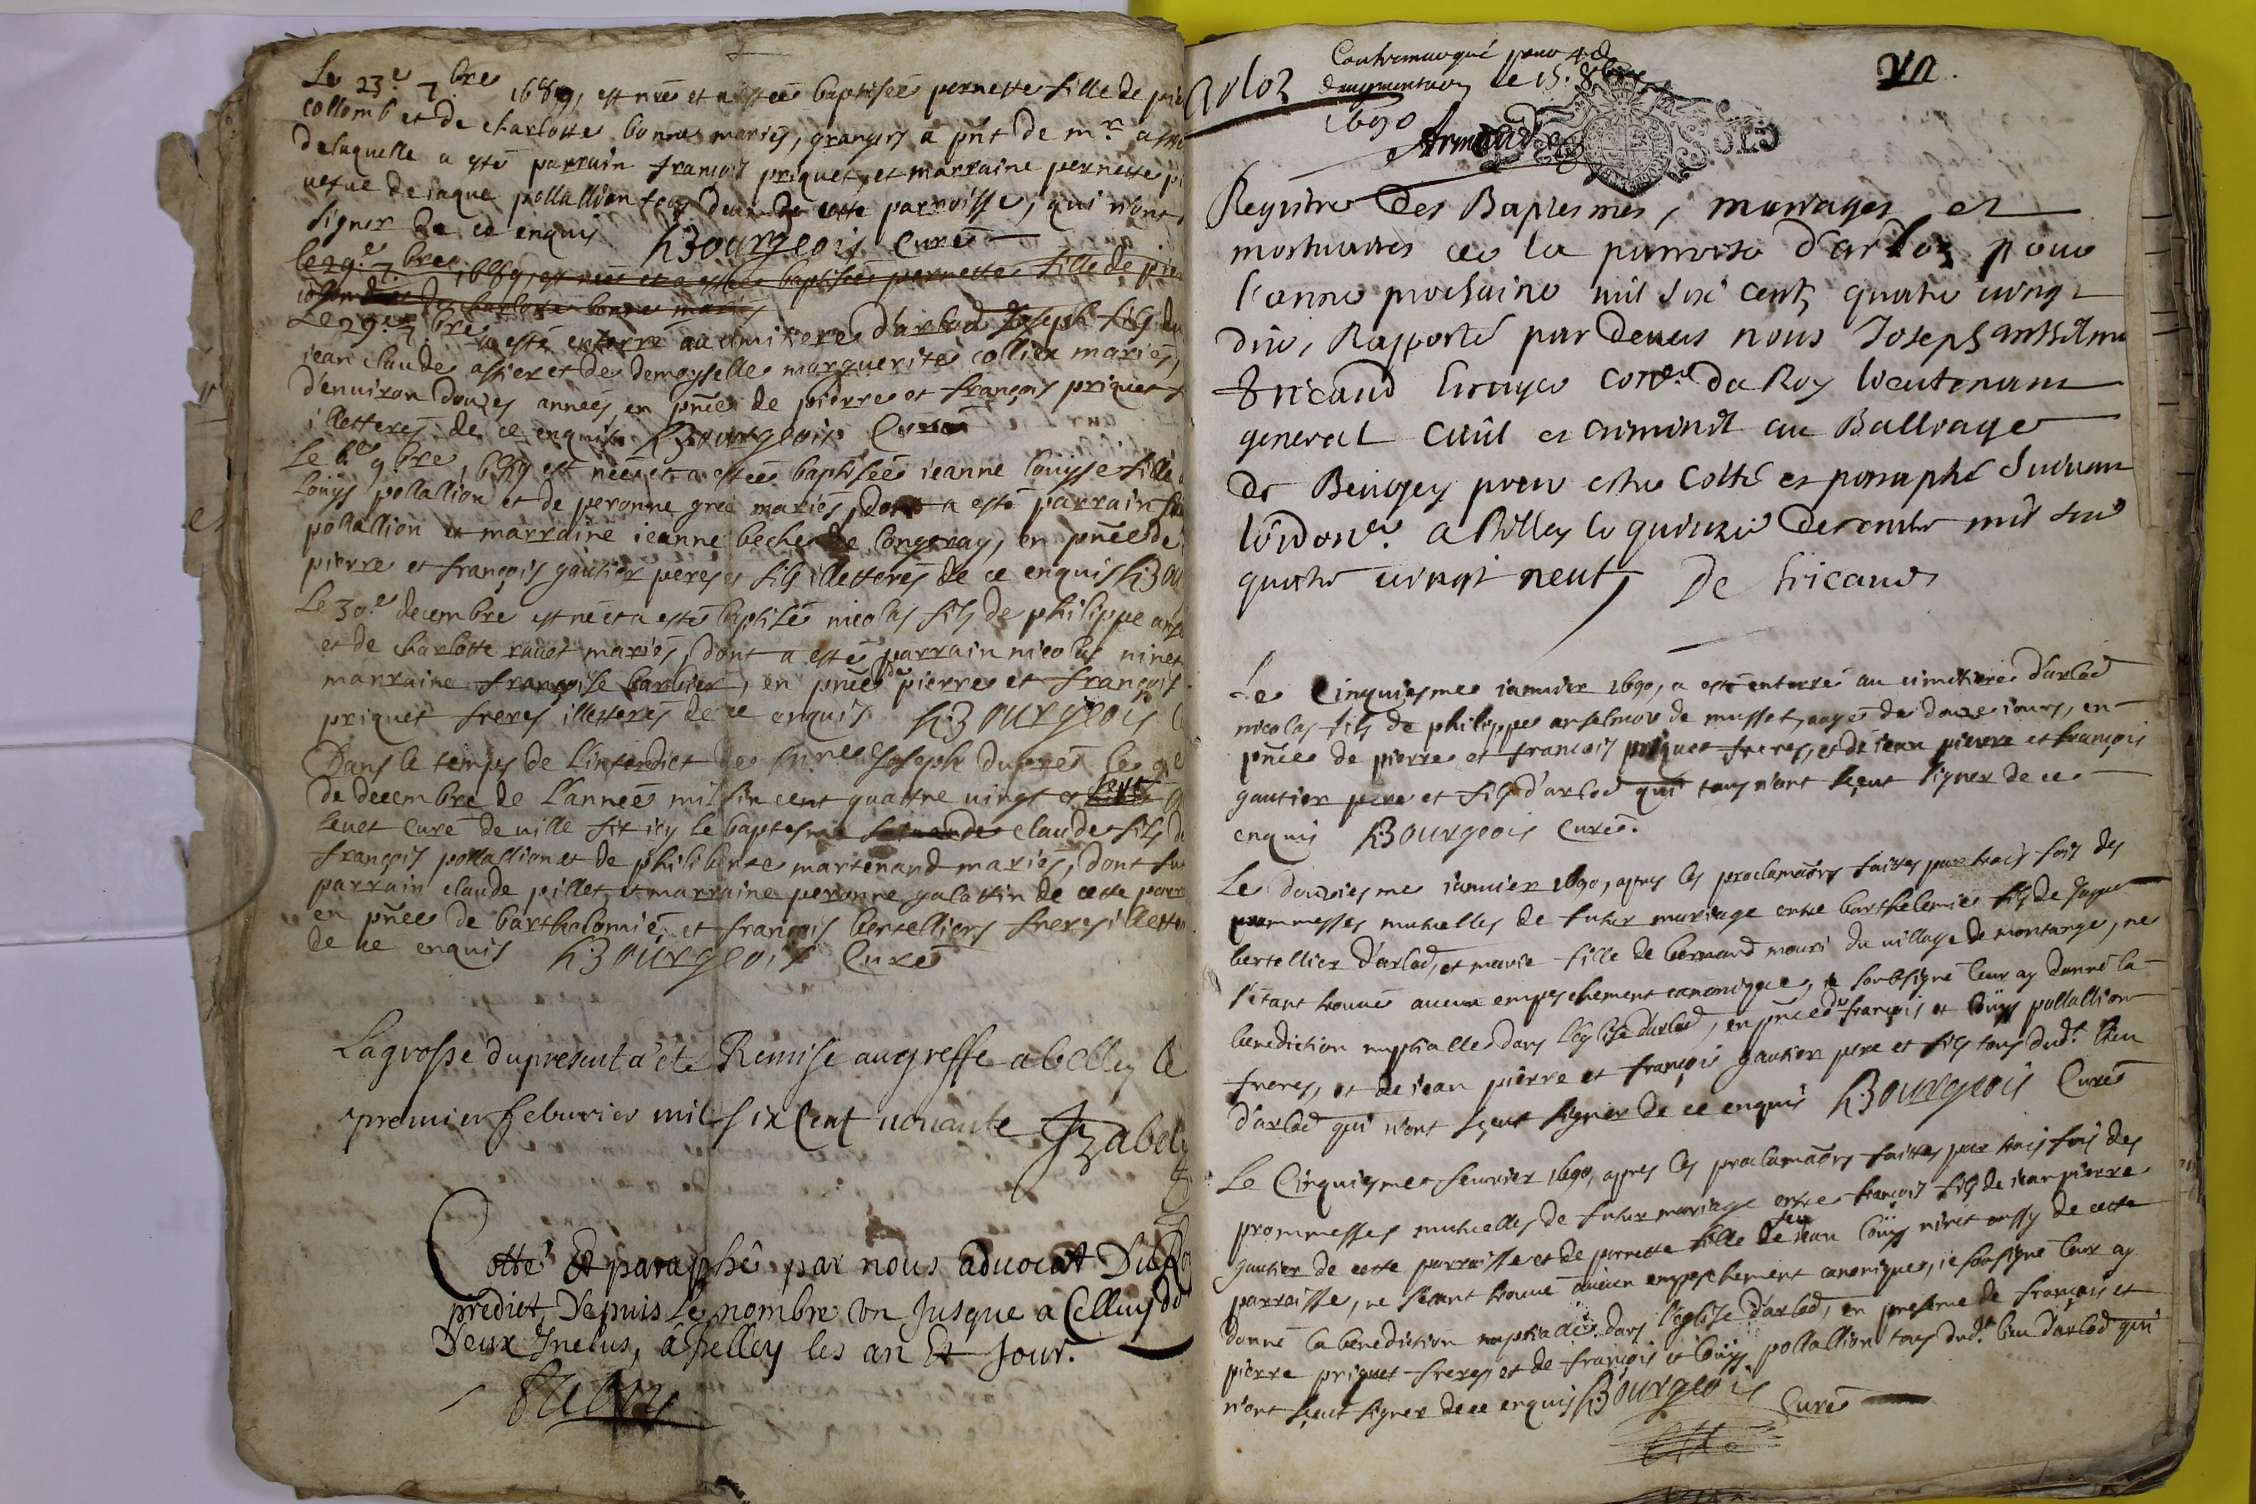 Le 23.e 7.bre 1689, est née et a estée baptisée pernette fille de pie
collomb et de charlotte bonne mariés, grangers a pñt de m.r
de laquelle a esté parrain françois priquet, et marraine pernette
uefue de iaque pollallion tous deux de cette parroisse, qui n'ont
signer de ce enquis hBourgeois Curé
le 29.e 7.bre 1689, est née et a estée baptisée pernette fille de pier
et de charlotte bonne mariés
Le 29.e 7.bre a esté enterré au cimitiere d'arlod Joseph fils de
iean claude assier et de demoyselle marguerite collier mariés,
d'enuiron douzes annees, en pñce de pierre et françois priquet
illetterés de ce enquis hBourgeois Curé
Le 6.e 9.bre 1689 est née et a estée baptisée ieanne louysse fille
Louys pollallion et de peronne gree mariés, dont a esté parrain
pollallion et marraine ieanne beche de longeray, en pñce de
pierre et françois gautier peres et fils illetterés de ce enquis hBou
Le 30.e decembre est né et a esté baptisé nicolas fils de philippe ans
et de charlotte rauet mariés, dont a esté parrain nicolas ninet
marraine françoise barbier, en pñce de pierre et françois
priquet freres illetterés de ce enquis hBourgeois
Dans le temps de l'interdict de Joseph dupré le
de decembre de l'année mil six cent quattre uingt et sept
leuet Curé de uille fit icy le baptesme claude fils de
françois pollallion et de philiberte martenand mariés, dont fu
parrain claude pillet, et marraine peronne galattin de cette parr
en pñce de bartholomié, et françois bertelliers freres illette
de ce enquis hBourgeois Curé
La grosse du present a eté Remise au greffe a belley le
premier feburier mil six Cent nonante
Cotté Et paraphé par nous aduocat Du Ro
predict, Depuis le nombre un Jusque a Celluy de
Deux Inclus, à Belley les an Et Jour.
Arloz
Contremarqué pour 4 d
daugmentaon le 15. 8bre
1690
Armand
Registre des Baptesmes, mariages et
mortuaires de la parroisse d'arloz pour
l'année prochaine mil six cents quatre uingt
dix, Rapporté par deuers nous Joseph anthelme
Tricaud Escuyer Con.er du Roy Lieutenant
general Ciuil et Criminel au Balliage
de Beugey pour estre Cotté et paraphé Suiuant
l'ordon.ce a Belley le quinzie decembre mil six
quatre uingt neuf, De Tricaud
Le Cinquiesme ianuier 1690, a esté enterré au cimitiere d'arlod
nicolas fils de philippe anselmov de mussel, aagé de douze iours, en
pñce de pierre et francois priquet freres, et de iean pierre et françois
gautier pere et fils d'arlod qui tous n'ont sçeut signer de ce
enquis hBourgeois Curé.
Le douziesme ianuier 1690, apres les proclamãons faites par trois fois des
prommesses mutuelles de futur mariage entre barthelemie fils de Jaque
bertellier d'arlod, et marie fille de bernard mouri du uillage de montange, ne
s'étant trouué aucun empeschement canonique, ie soubsigné leur ay donné la
benediction nuptialle dans l'eglise d'arlod, en pñce de françois et Louys pollallion
freres, et de iean pierre et françois gautier pere et fils tous dud.t lieu
d'arlod qui n'ont sçeut signer de ce enquis hBourgeois Curé
Le Cinquiesme feurier 1690, apres les proclamãons faittes par trois fois des
prommesses mutuelles de futur mariage entre françois fils de iean pierre
gautier de cette parroisse et de pernette fille de feu iean louys niret aussy de cette
parroisse, ne s'étant trouué aucun empeschement canonique, ie soussigné leur ay
donné la benediction nuptialle dans l'eglise d'arlod, en presence de françois et
pierre priquet freres et de françois et louys pollallion tous dud.t lieu d'arlod qui
n'ont sçeut signer de ce enquis hBourgeois Curé